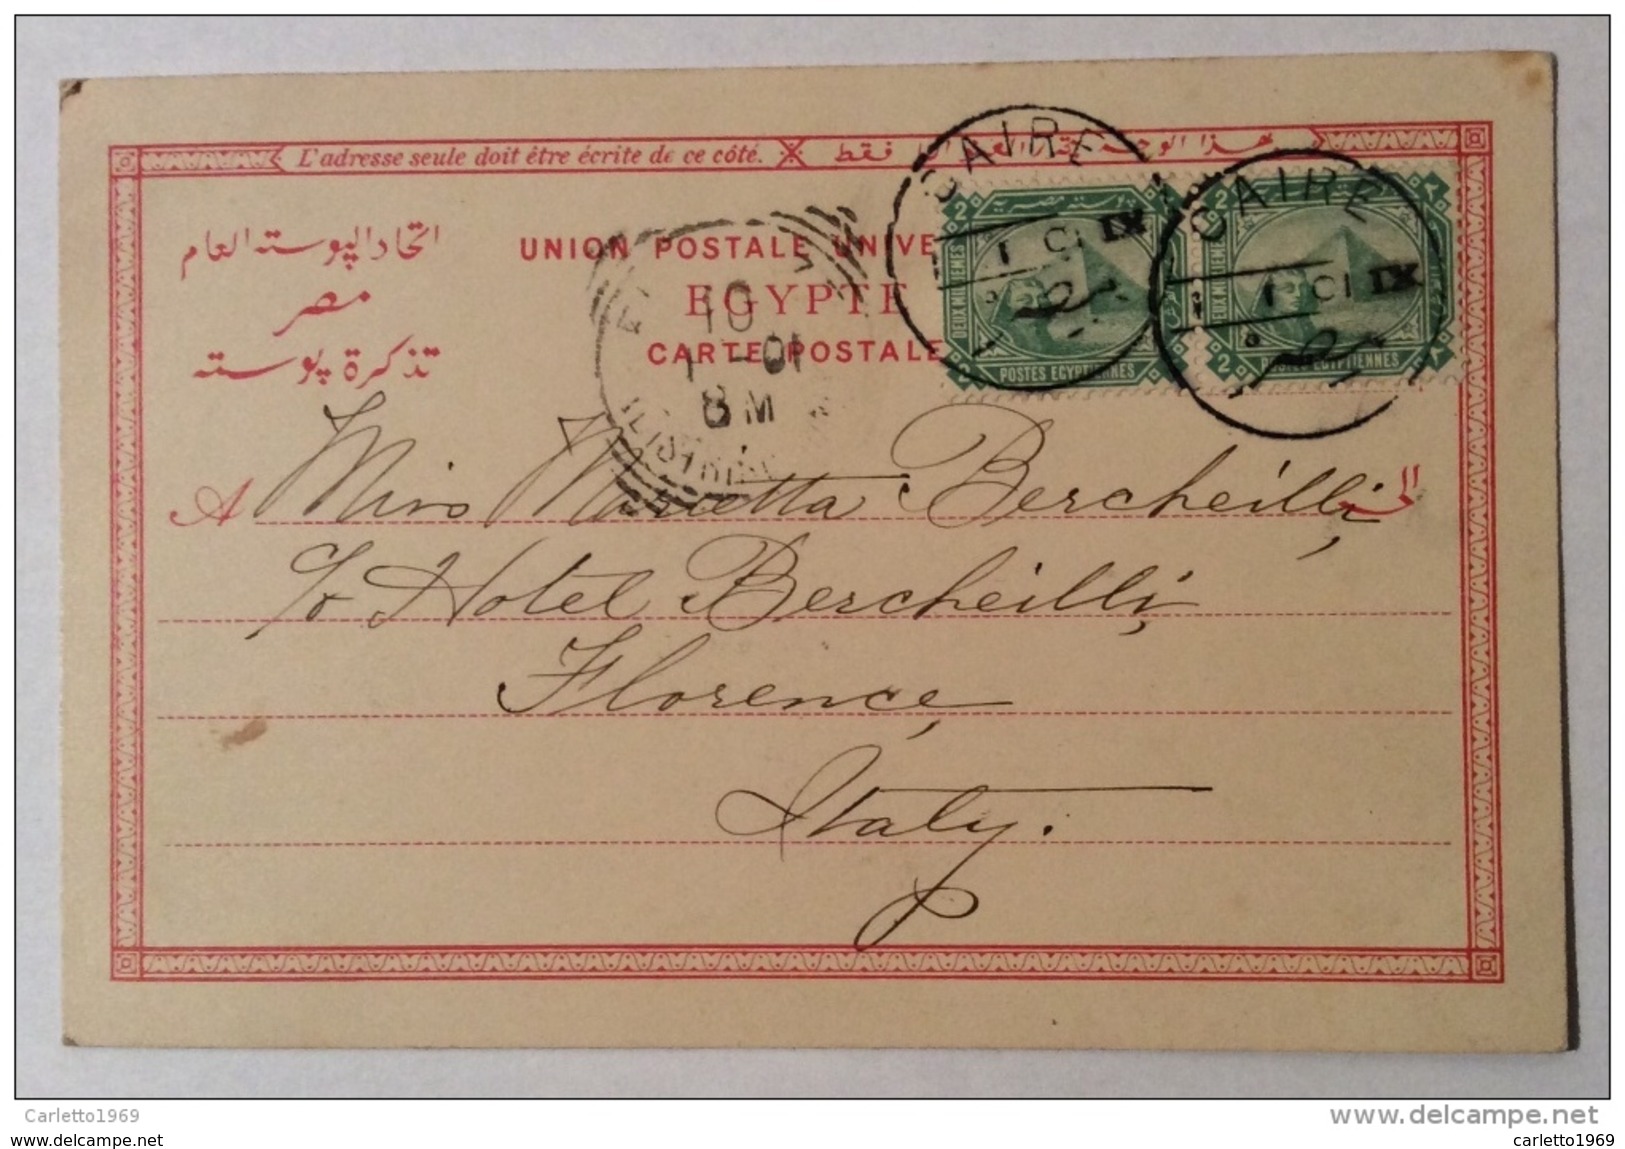 L'adresse seule doit être écrite de ce côté.
اتحاد البوسته العام
مصر
تذكرة بوسته
UNION POSTALE UNIVE
EGYPTE
CARTE POSTALE
CAIRE
1 01 IX
CAIRE
1 01 IX
2 2
DEUX MILLIEMES
POSTES EGYPTIENNES
2
DEUX MILLIEMES
POSTES EGYPTIENNES
2
10
1-01
8 M
A Miss Marietta Bercheilli,
c/o Hotel Bercheilli,
Florence,
Italy.
Carletto1969
www.delcampe.net
www.delcampe.com
carletto1969